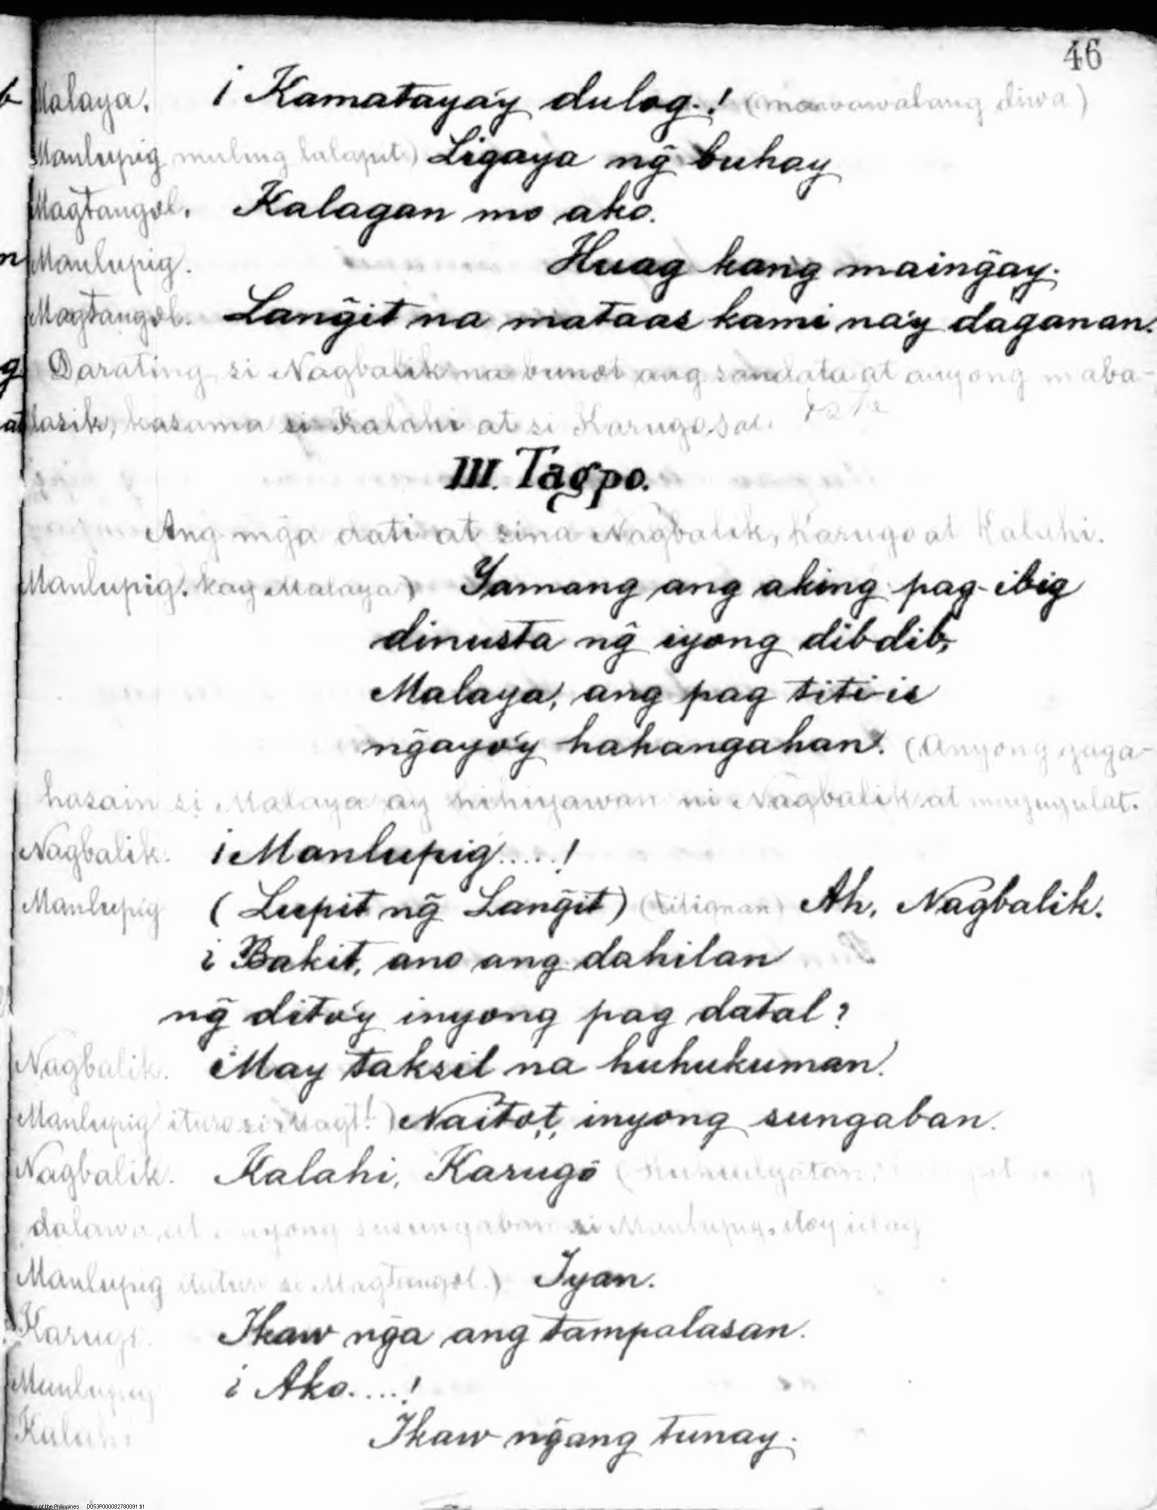 46
Malaya. ¡ Kamataya'y dulog.! (mawawalang diwa)
Manlupig muling lalapit) Ligaya ng̃ buhay
Magtangol. Kalagan mo ako.
Manlupig. Huag kang maing̃ay.
Magtangol. Lang̃it na mataas kami na'y daganan.
Darating si Nagbalik na bunot ang sandata at anyong maba-
lasik, kasama si Kalahi at si Karugo.
III. Tagpo.
Ang mg̃a dati at sina Nagbalik, Karugo at Kalahi.
Manlupig. kay Malaya) Yamang ang aking pag-ibig
dinusta ng̃ iyong dibdib,
Malaya, ang pag titi-is
ng̃ayo'y hahangahan. (Anyong gaga-
hasain si Malaya ay hihiyawan ni Nagbalik at magugulat.
Nagbalik. ¡Manlupig.....!
Manlupig (Lupit ng̃ Lang̃it) (titignan) Ah, Nagbalik.
¿ Bakit, ano ang dahilan
ng̃ dito'y inyong pag datal?
Nagbalik. May taksil na huhukuman.
Manlupig ituro si Magt.) Naito't, inyong sungaban.
Nagbalik. Kalahi, Karugô
dalawa, at anyong susungaban si Manlupig, ito'y
Manlupig ituturo si Magtangol.) Iyan.
Karugo. Ikaw ng̃a ang tampalasan.
Manlupig ¿ Ako....!
Kalahi Ikaw ng̃ang tunay.